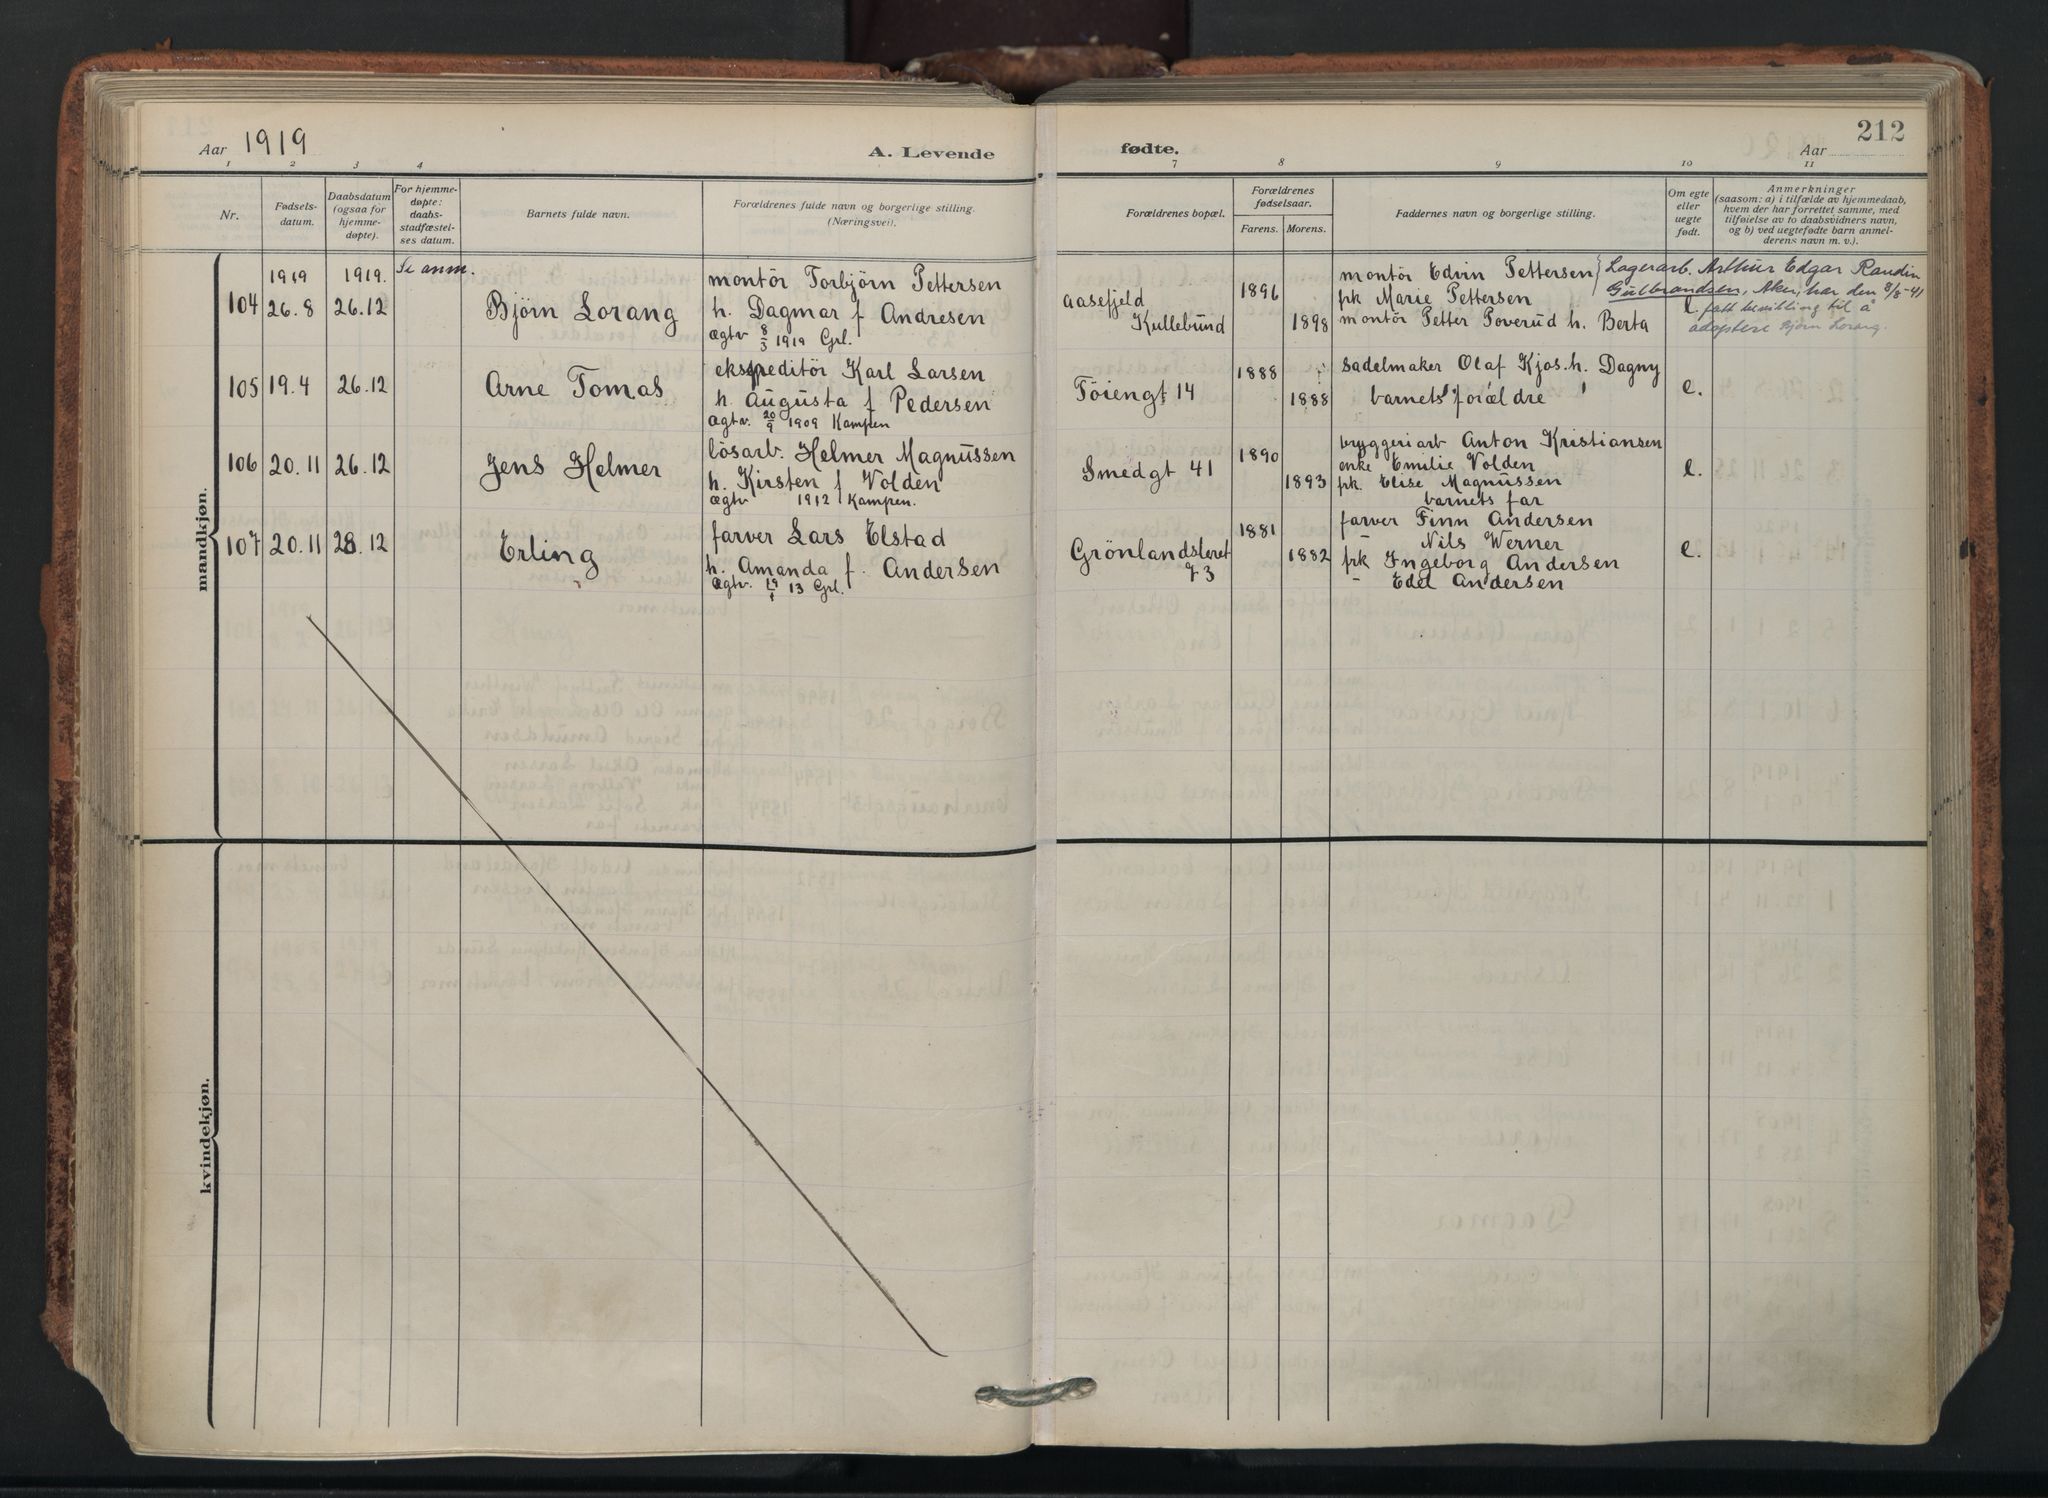 Aar 1919
A. Levende fødte.
Aar
212
1 2 3 4 7 8 9 10 11
Nr.
Fødsels-
datum.
Daabsdatum
(ogsaa for
hjemme-
døpte).
For hjemme-
døpte:
daabs-
stadfæstel-
ses datum.
Barnets fulde navn.
Forældrenes fulde navn og borgerlige stilling.
(Næringsvei).
Forældrenes bopæl.
Forældrenes
fødselsaar.
Farens. Morens.
Faddernes navn og borgerlige stilling.
Om egte
eller
uegte
født.
Anmerkninger
(saasom: a) i tilfælde av hjemmedaab,
hvem der har forrettet samme, med
tilføielse av to daabsvidners navn,
og b) ved uegtefødte barn anmel-
derens navn m. v.).
mandkjøn.
104
1919
26.8
1919.
26.12
Se anm.
Bjørn Lorang
montör Torbjörn Pettersen
h. Dagmar f Andresen
ægtv 8/3 1919 Grl.
aasefjeld
Kullebund
1896
1898
montör Edvin Pettersen
frk Marie Pettersen
montör Petter Poverud h. Berta
e.
Lagerarb. Arthur Edgar Randin
Gulbrandsen, Aker, har den 8/8-41
fått bevilling til å
adoptere Bjørn Lorang.
105 19.4 26.12
Arne Tomas
ekspeditör Karl Larsen
h. Augusta f Pedersen
ægtv. 20/9 1909 Kampen
Töiengt 14
1888
1888
sadelmaker Olaf Kjos. h. Dagny
barnets forældre
e.
106 20.11 26.12
Jens Helmer
lösarb. Helmer Magnussen
h. Kirsten f Volden
ægtv 1912 Kampen.
Smedgt 41
1890
1893
bryggeriarb Anton Kristiansen
enke Emilie Volden
frk. Elise Magnussen
barnets far
e.
107 20.11 28.12
Erling
farver Lars Elstad
h. Amanda f. Andersen
ægtv. 19/1 13 Grl.
Grönlandsleret
73
1881
1882
farver Finn Andersen
Nils Werner
frk Ingeborg Andersen
– Edel Andersen
e.
kvindekjøn.